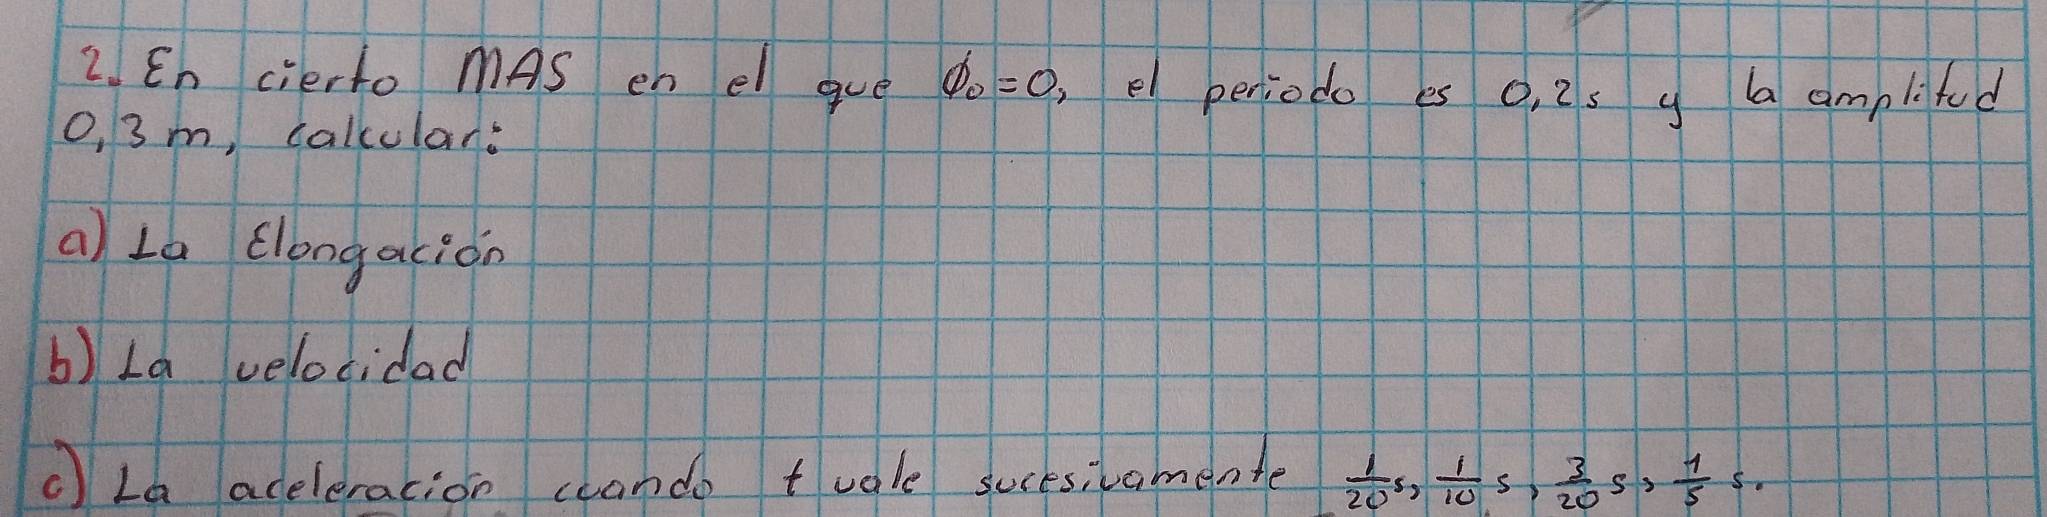 2. En cierto MAS en el que ϕ₀=0, el periodo es 0,2s y la amplitud
0,3 m, calcular:
a) La Elongación
b) La velocidad
c) La aceleración cuando t vale sucesivamente 1/20 s, 1/10 s, 3/20 s, 1/5 s.